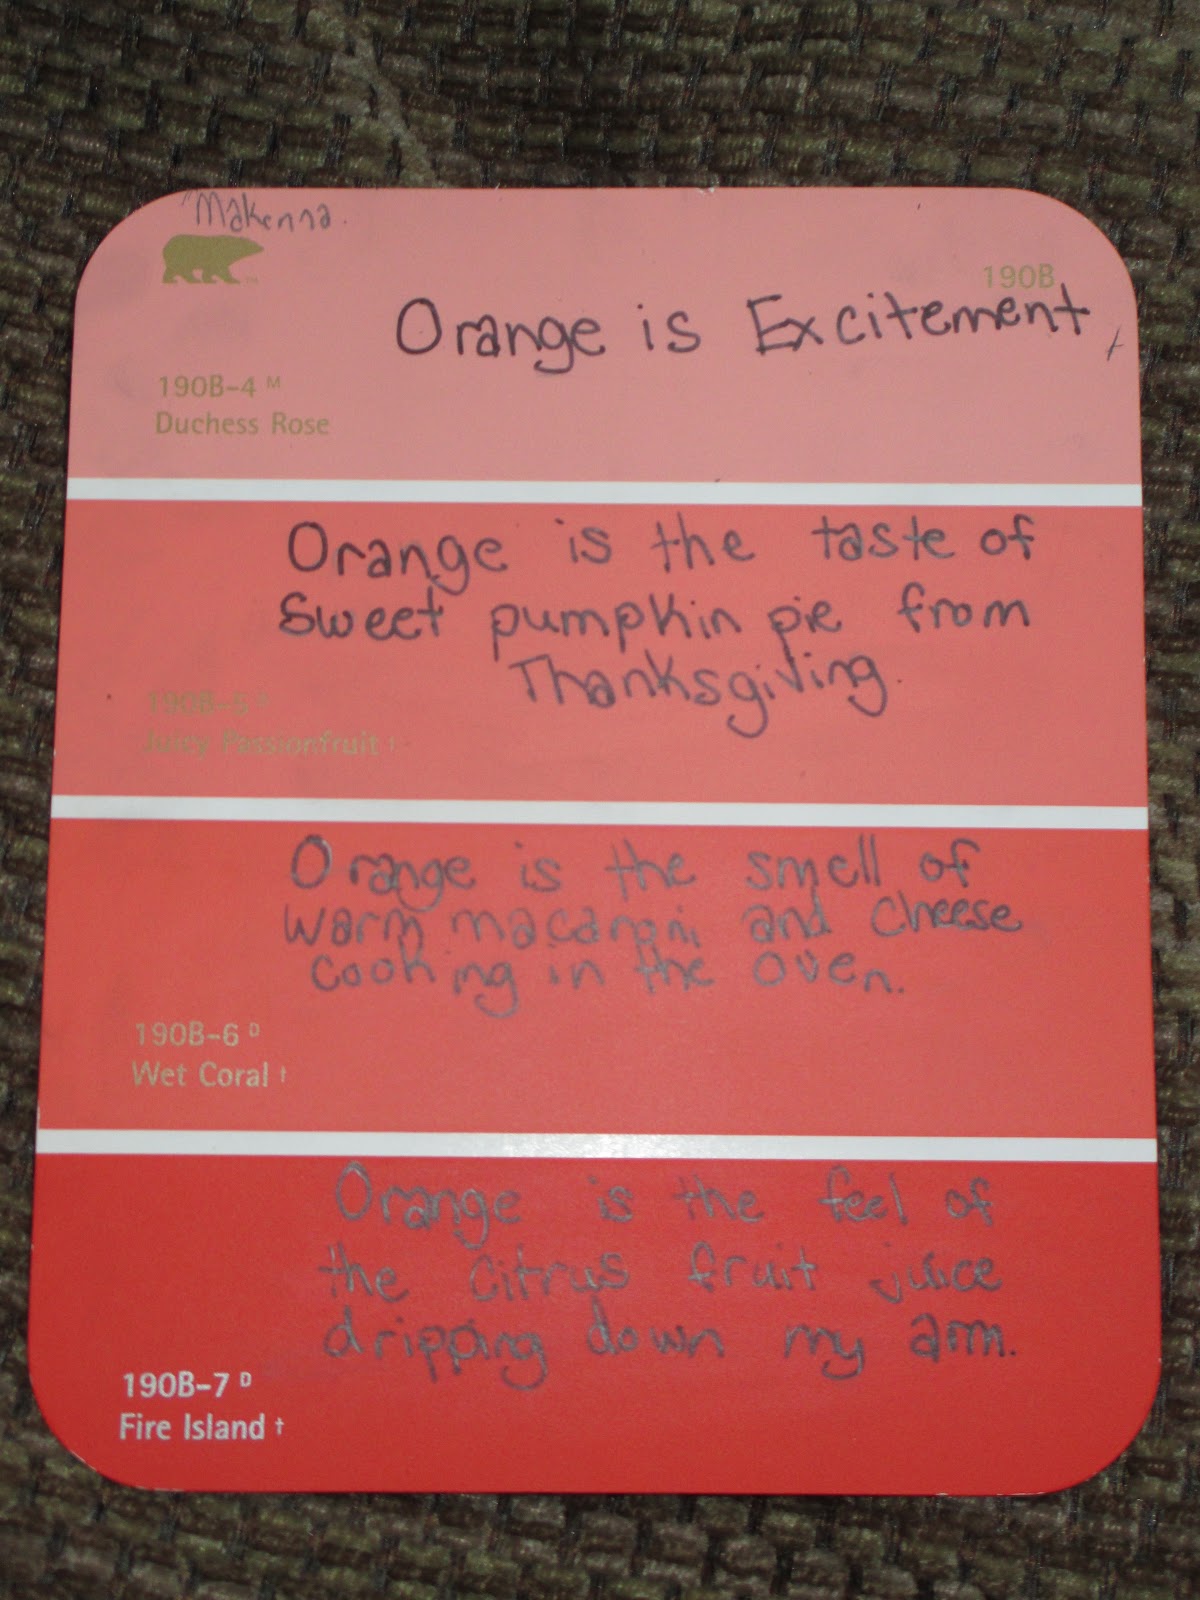 "Makenna.
190B
Orange is Excitement
190B-4 M
Duchess Rose
Orange is the taste of
Sweet pumpkin pie from
Thanksgiving.
190B-5 D
Juicy Passionfruit †
Orange is the smell of
warm macaroni and cheese
cooking in the oven.
190B-6 D
Wet Coral †
Orange is the feel of
the citrus fruit juice
dripping down my arm.
190B-7 D
Fire Island †